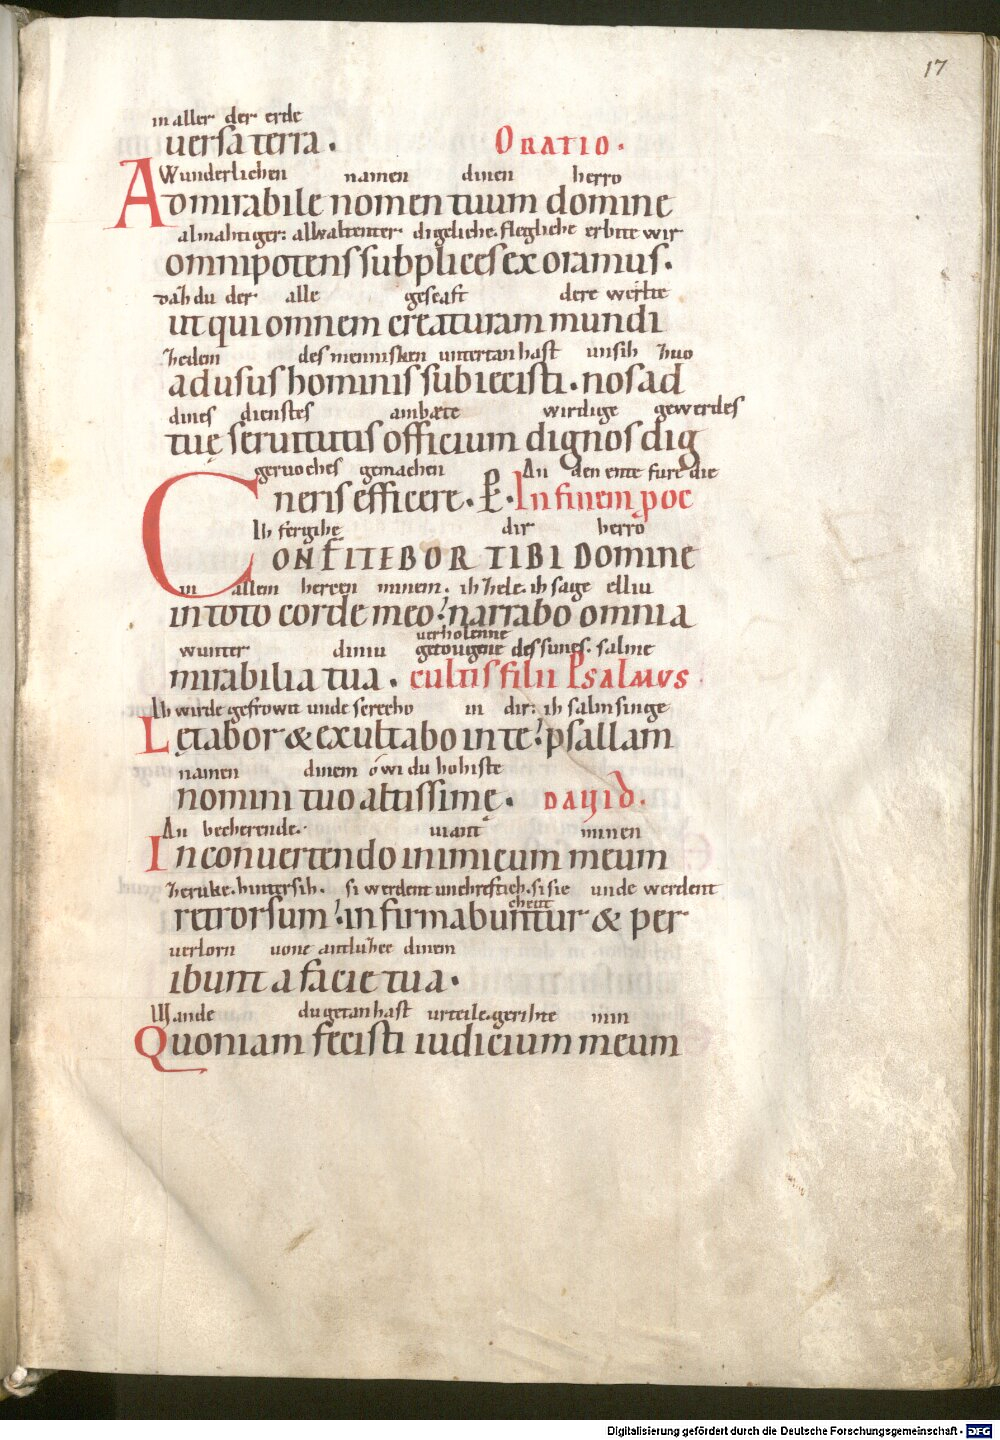 17
in aller der erde
uersa terra. ORATIO.
Wunderlichen namen dinen herro
Admirabile nomen tuum domine
almahtiger: allwaltenter digeliche. flegliche erbite wir
omnipotens subplices exoramus.
dah du der alle gescaft dere werlte
ut qui omnem creaturam mundi
zedem des mennisken untertan hast unsih zuo
ad usus hominis subiecisti. nos ad
dines dienstes ambæte wirdige gewerdes
tuę seruitutis officium dignos dig
geruoches gemachen An den ente fure die
neris efficere. In finem p oc
Ih fergihę dir herro
CONFITEBOR TIBI Domine
in allem hercen minem. ih zele. ih sage elliu
in toto corde meo? narrabo omnia
uerholenne
wunter diniu getougene des sunes. salme
mirabilia tua. cultis filii PSALMUS
Ih wirde gefrowit unde serecho in dir: ih salmsinge
Lętabor & exultabo in te? psallam
namen dinem ówi du hohiste
nomini tuo altissimę. DAUID.
An becherende. uiant minen
In conuertendo inimicum meum
zeruke. hintersih. si werdent unchreftich. si sie unde werdent
chent
retrorsum? infirmabuntur & per
uerlorn uone antluzce dinem
ibunt a facie tua.
Wande du getan hast urteile. gerihte min
Quoniam fecisti iudicium meum
Digitalisierung gefördert durch die Deutsche Forschungsgemeinschaft - DFG